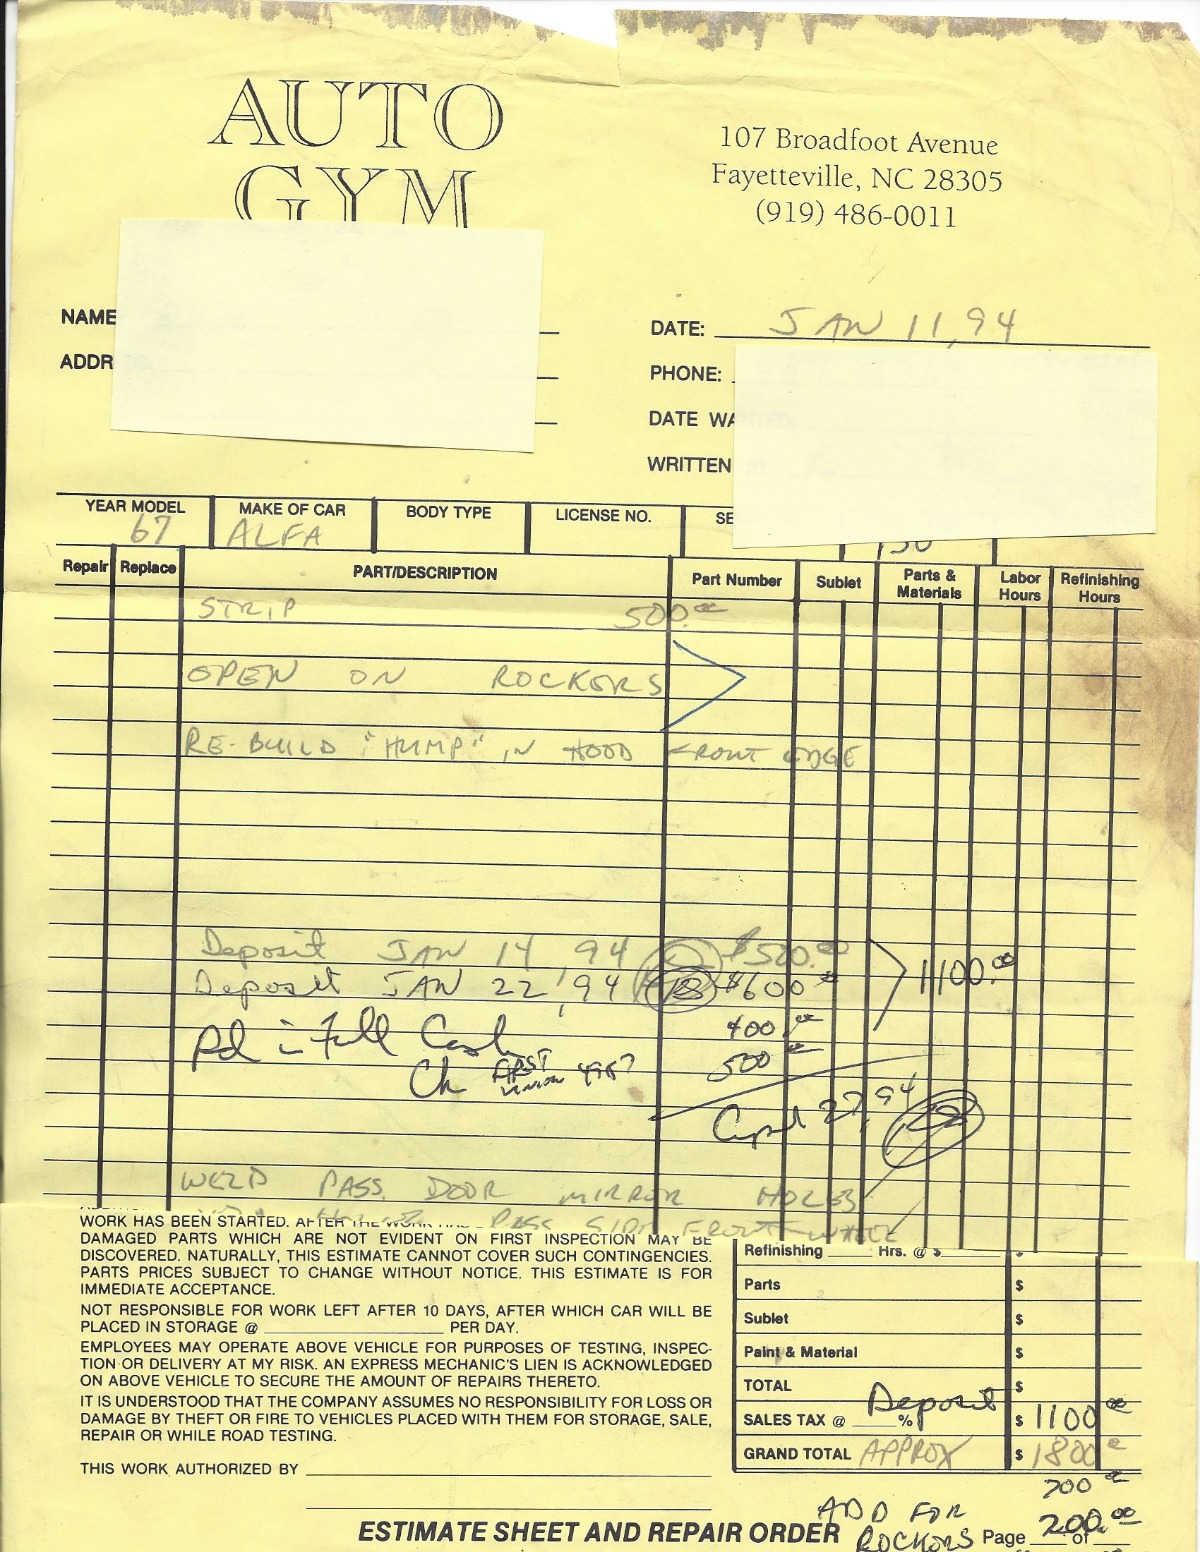 AUTO
GYM
107 Broadfoot Avenue
Fayetteville, NC 28305
(919) 486-0011
NAME
ADDR
DATE: JAN 11, 94
PHONE:
DATE WA
WRITTEN
YEAR MODEL MAKE OF CAR BODY TYPE LICENSE NO. SE
67 ALFA
Repair Replace PART/DESCRIPTION Part Number Sublet Parts & Materials Labor Hours Refinishing Hours
STRIP 500.00
OPEN ON ROCKORS
RE-BUILD "HUMP" IN HOOD FRONT EDGE
Deposit JAN 14 94 $500.00
Deposit JAN 22, '94 $600 00 1100.00
Pd in Full Cash 400.00
Ck FIRST UNION 500 00
April 27, 94
WELD PASS. DOOR MIRROR HOLES
PASS SIDE FRONT WHEEL
WORK HAS BEEN STARTED. AFTER THE WORK HAS
DAMAGED PARTS WHICH ARE NOT EVIDENT ON FIRST INSPECTION MAY BE
DISCOVERED. NATURALLY, THIS ESTIMATE CANNOT COVER SUCH CONTINGENCIES.
PARTS PRICES SUBJECT TO CHANGE WITHOUT NOTICE. THIS ESTIMATE IS FOR
IMMEDIATE ACCEPTANCE.
NOT RESPONSIBLE FOR WORK LEFT AFTER 10 DAYS, AFTER WHICH CAR WILL BE
PLACED IN STORAGE @ PER DAY.
EMPLOYEES MAY OPERATE ABOVE VEHICLE FOR PURPOSES OF TESTING, INSPEC-
TION OR DELIVERY AT MY RISK. AN EXPRESS MECHANIC'S LIEN IS ACKNOWLEDGED
ON ABOVE VEHICLE TO SECURE THE AMOUNT OF REPAIRS THERETO.
IT IS UNDERSTOOD THAT THE COMPANY ASSUMES NO RESPONSIBILITY FOR LOSS OR
DAMAGE BY THEFT OR FIRE TO VEHICLES PLACED WITH THEM FOR STORAGE, SALE,
REPAIR OR WHILE ROAD TESTING.
THIS WORK AUTHORIZED BY
Refinishing Hrs. @ $ $
Parts $
Sublet $
Paint & Material $
TOTAL $
Deposit
SALES TAX @ % $ 1100 00
GRAND TOTAL APPROX $ 1800 00
700 00
ADD FOR ROCKORS 200.00
ESTIMATE SHEET AND REPAIR ORDER Page of